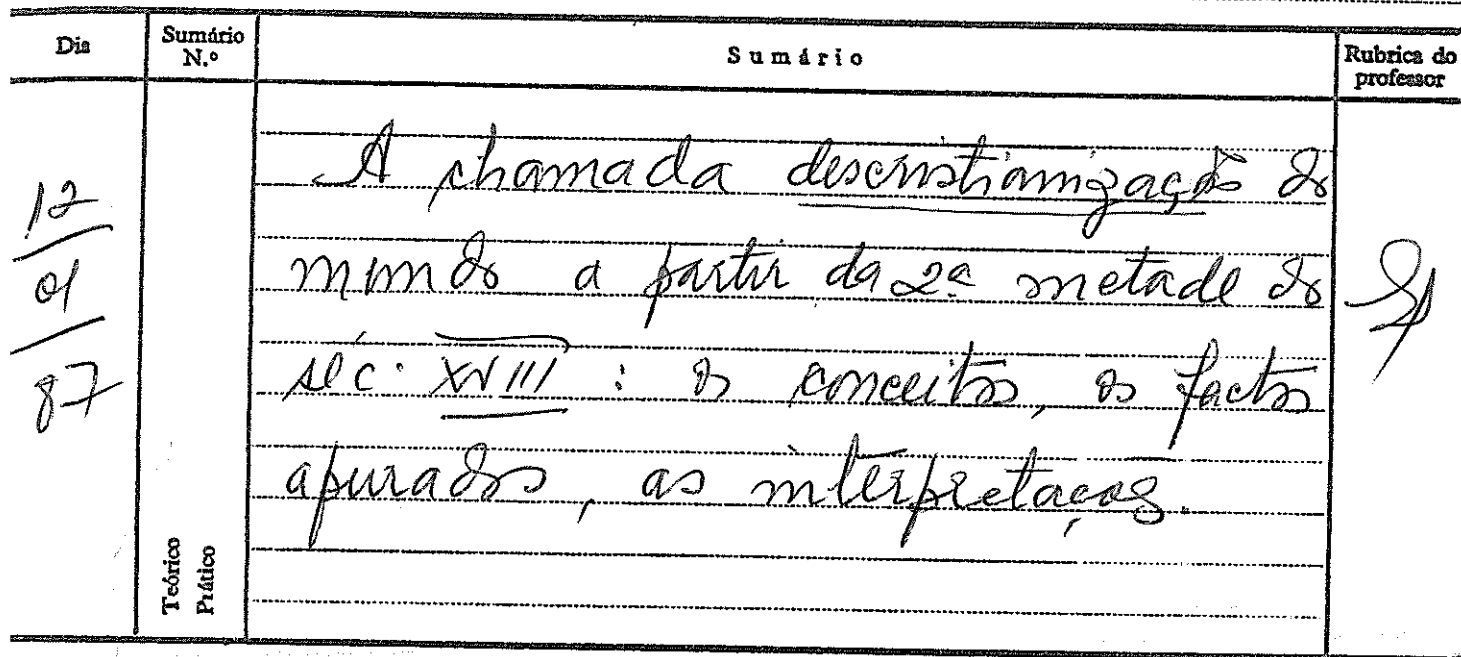 Dia
Sumário
N.º
Sumário
Rubrica do
professor
12
01
87
A chamada descristianização do
mundo a partir da 2ª metade do
séc. XVIII : os conceitos, os factos
apurados, as interpretações.
Teórico
Prático